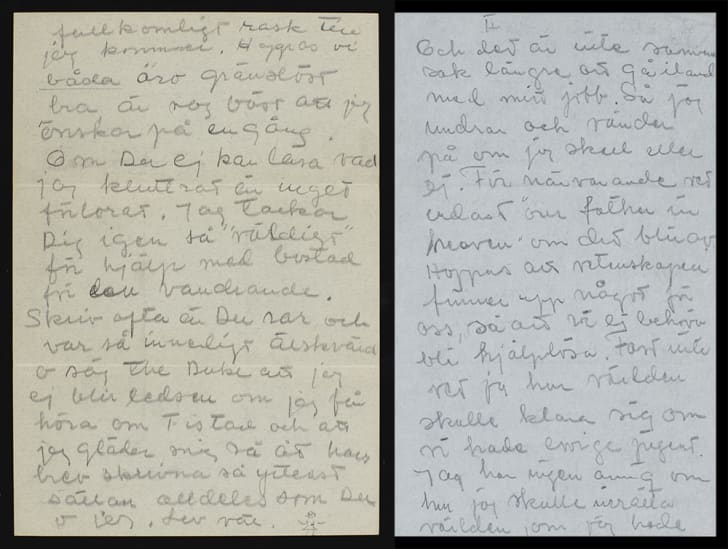 fullkomligt rask the
jag kommer. Hoppas vi
båda äro gränslöst
bra är nog bäst att jag
önskar på en gång.
Om Du ej kan läsa vad
jag kluttrat är inget
förlorat. Jag tackar
Dig igen så "väldigt"
för hjälp med bostad
för den vandrande.
Skriv ofta är Du rar och
var så innerligt älskvärd
o säg the Duke att jag
ej blir ledsen om jag får
höra om Tistad och att
jag gläder mig så åt hans
brev skrivna så ytterst
sällan alldeles som Du
o jag. Lev väl.
II
Och det är inte samma
sak längre att gå iland
med mitt jobb. Så jag
undrar och vänder
på om jag skall eller
ej. För närvarande vet
endast "our father in
heaven" om det blir av
Hoppas att vetenskapen
finner upp något för
oss, så att vi ej behöva
bli hjälplösa. Fast inte
vet jag hur världen
skulle klara sig om
vi hade evige jugent.
Jag har ingen aning om
hur jag skulle inrätta
världen, om jag hade